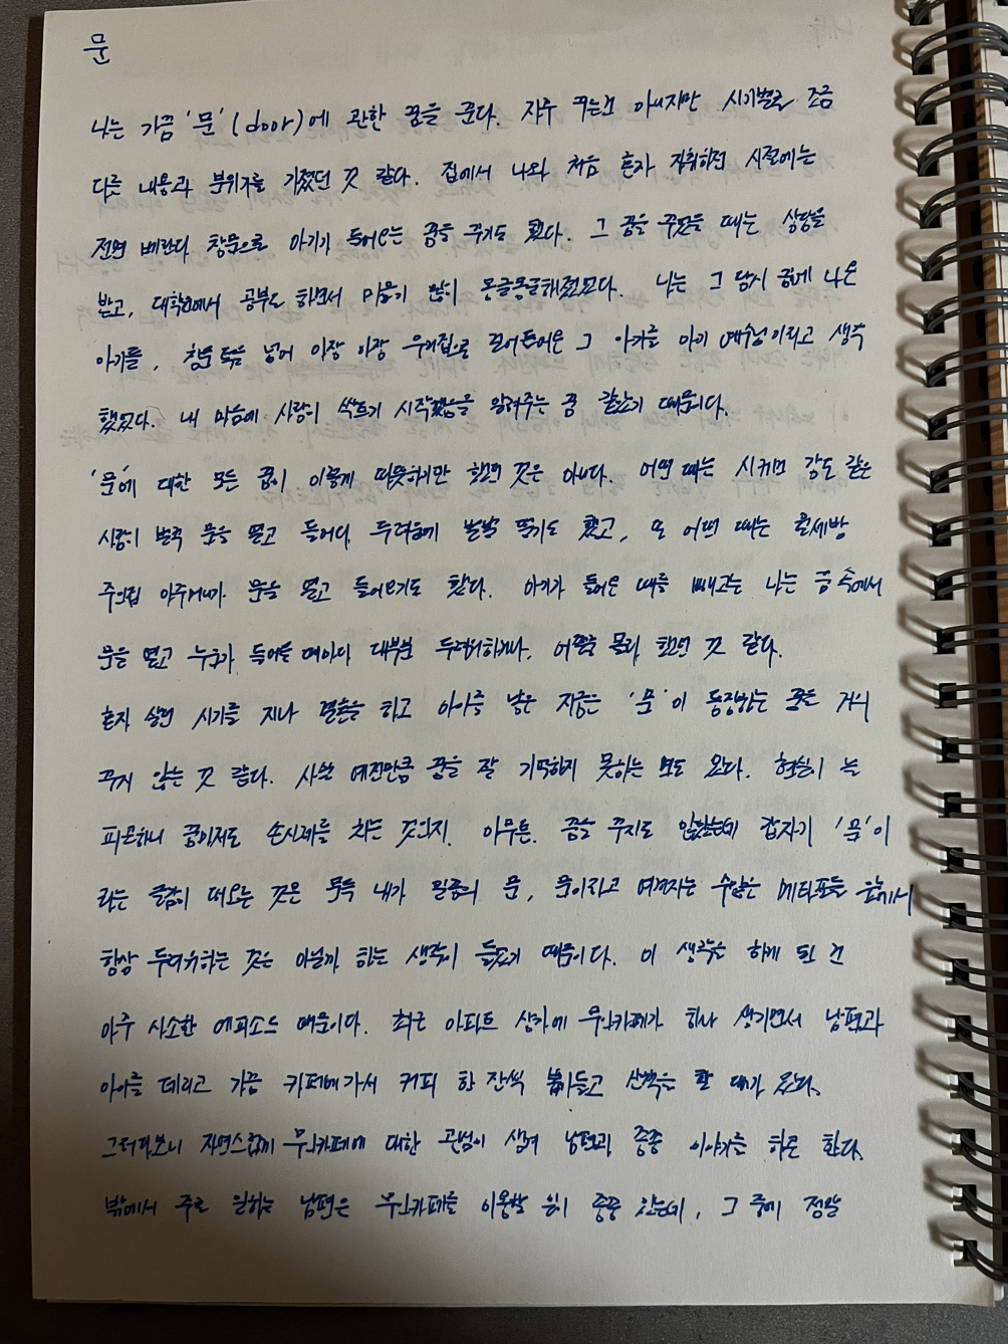 문
나는 가끔 '문'(door)에 관한 꿈을 꾼다. 자주 꾸는건 아니지만 시기별로 조금
다른 내용과 분위기를 가졌던 것 같다. 집에서 나와 처음 혼자 자취하던 시절에는
전면 베란다 창문으로 아기가 들어오는 꿈을 꾸기도 했다. 그 꿈을 꾸었을 때는 상담을
받고, 대학원에서 공부도 하면서 마음이 많이 몽글몽글해졌었다. 나는 그 당시 꿈에 나온
아기를, 창문 턱을 넘어 아장 아장 우리집으로 걸어들어온 그 아기를 아기 예수님이라고 생각
했었다. 내 마음에 사랑이 싹트기 시작했음을 알려주는 꿈 같았기 때문이다.
'문'에 대한 모든 꿈이 이렇게 따뜻하기만 했던 것은 아니다. 어떤 때는 시커먼 강도 같은
사람이 벌컥 문을 열고 들어와 두려움에 벌벌 떨기도 했고, 또 어떤 때는 월세방
주인집 아주머니가 문을 열고 들어오기도 했다. 아기가 들어온 때를 빼고는 나는 꿈 속에서
문을 열고 누군가 들어올 때마다 대부분 두려워하거나, 어쩔줄 몰라 했던 것 같다.
혼자 살던 시기를 지나 결혼을 하고 아이를 낳은 지금은 '문'이 등장하는 꿈은 거의
꾸지 않는 것 같다. 사실 예전만큼 꿈을 잘 기억하지 못하는 것도 같다. 현실이 늘
피곤하니 꿈이저도 손사래를 치는 것인지. 아무튼. 꿈을 꾸지도 않았는데 갑자기 '문'이
라는 글감이 떠오른 것은 문득 내가 일종의 문, 문이라고 여겨지는 수많은 메타포들 앞에서
항상 두려워하는 것은 아닐까 하는 생각이 들었기 때문이다. 이 생각을 하게 된 건
아주 사소한 에피소드 때문이다. 최근 아파트 상가에 무인카페가 하나 생기면서 남편과
아이를 데리고 가끔 카페에 가서 커피 한 잔씩 뽑아들고 산책을 할 때가 있다.
그러다보니 자연스럽게 무인카페에 대한 관심이 생겨 남편과 종종 이야기를 하곤 한다.
밖에서 주로 일하는 남편은 무인카페를 이용할 일이 종종 있는데, 그 중에 정말